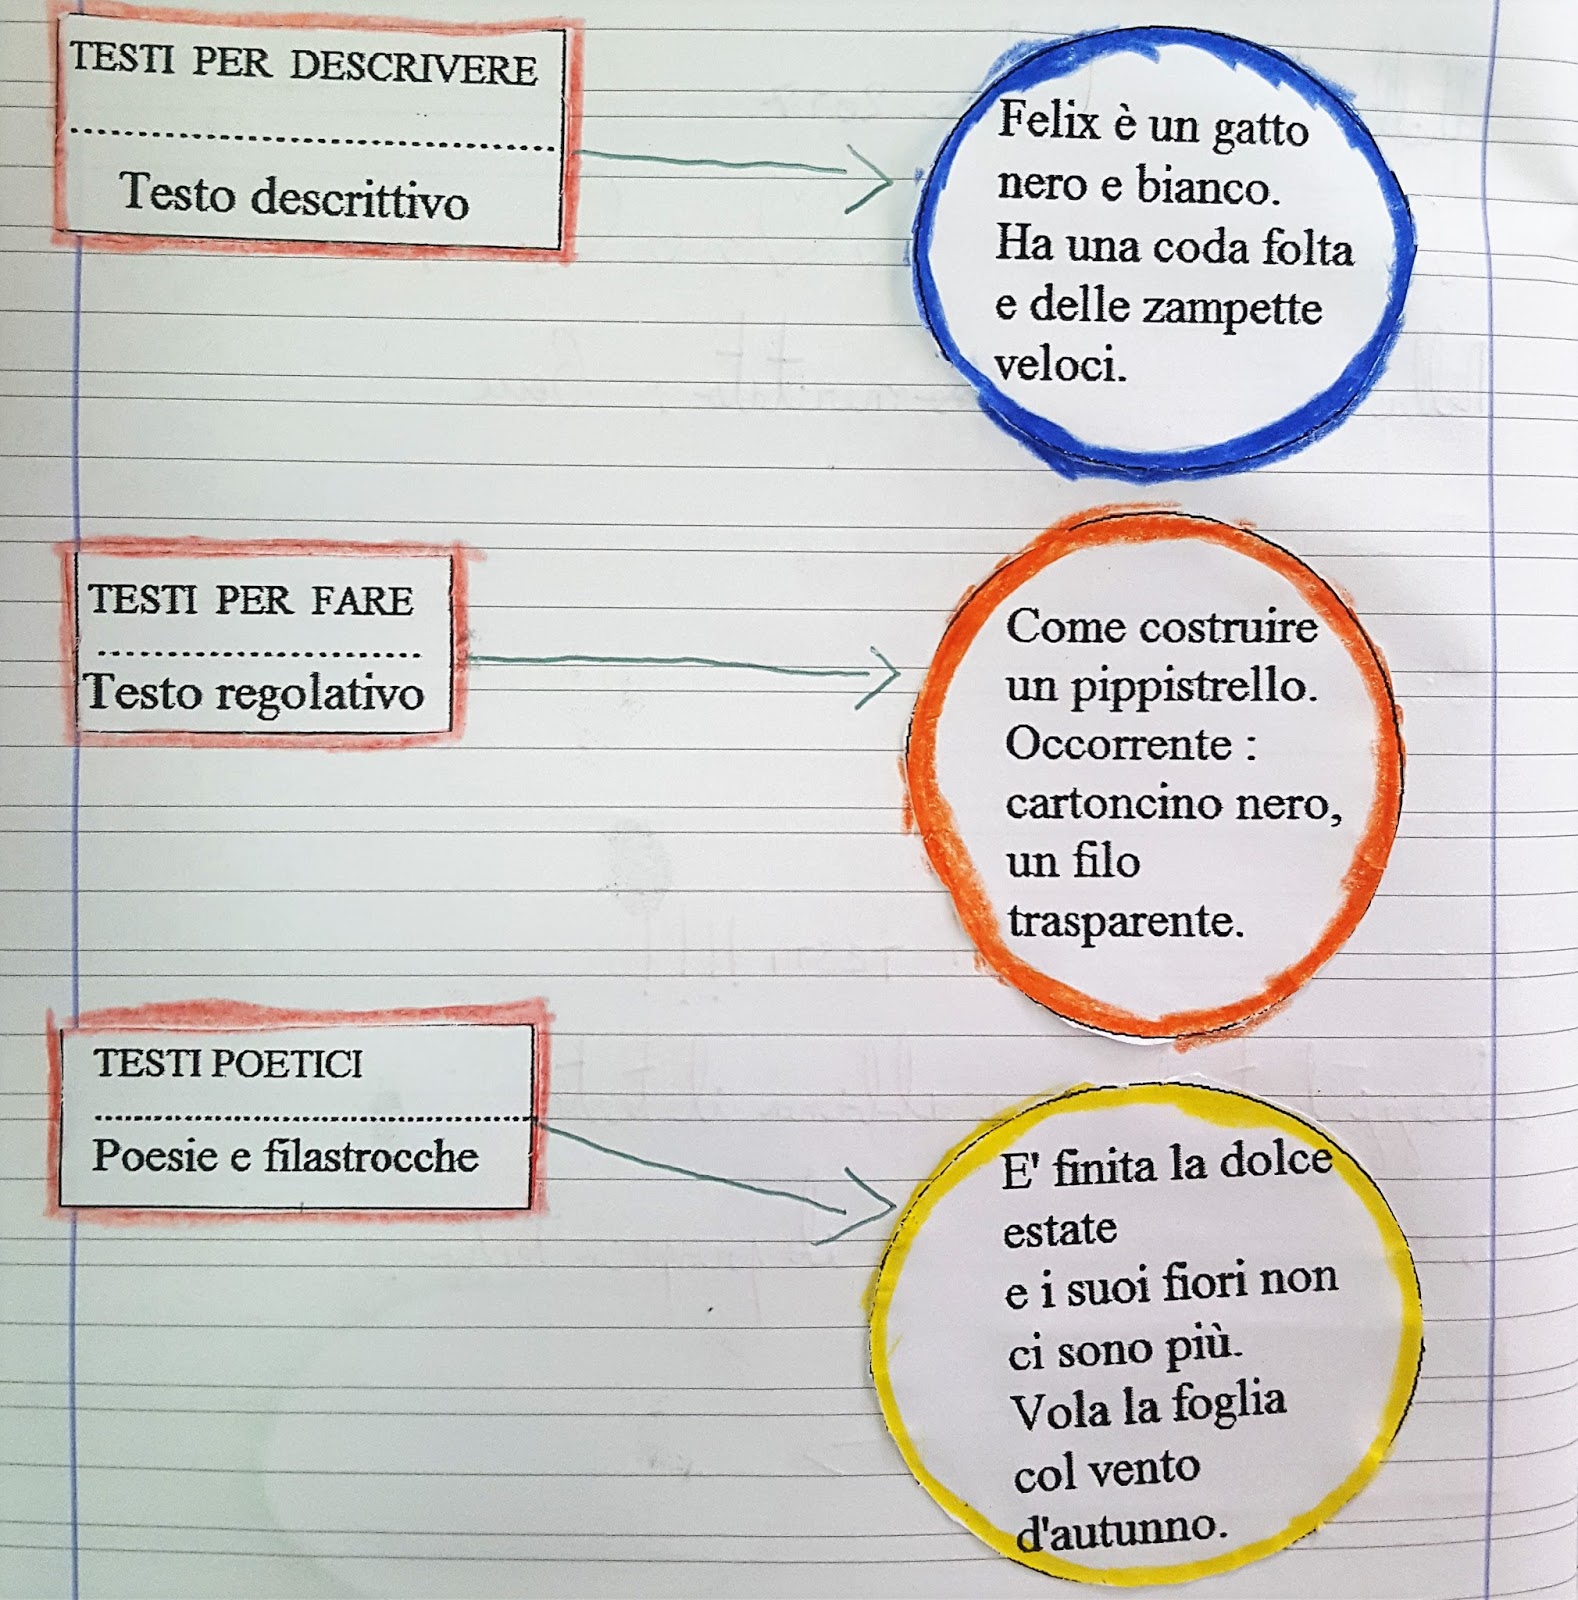 TESTI PER DESCRIVERE
Testo descrittivo
Felix è un gatto
nero e bianco.
Ha una coda folta
e delle zampette
veloci.
TESTI PER FARE
Testo regolativo
Come costruire
un pippistrello.
Occorrente :
cartoncino nero,
un filo
trasparente.
TESTI POETICI
Poesie e filastrocche
E' finita la dolce
estate
e i suoi fiori non
ci sono più.
Vola la foglia
col vento
d'autunno.